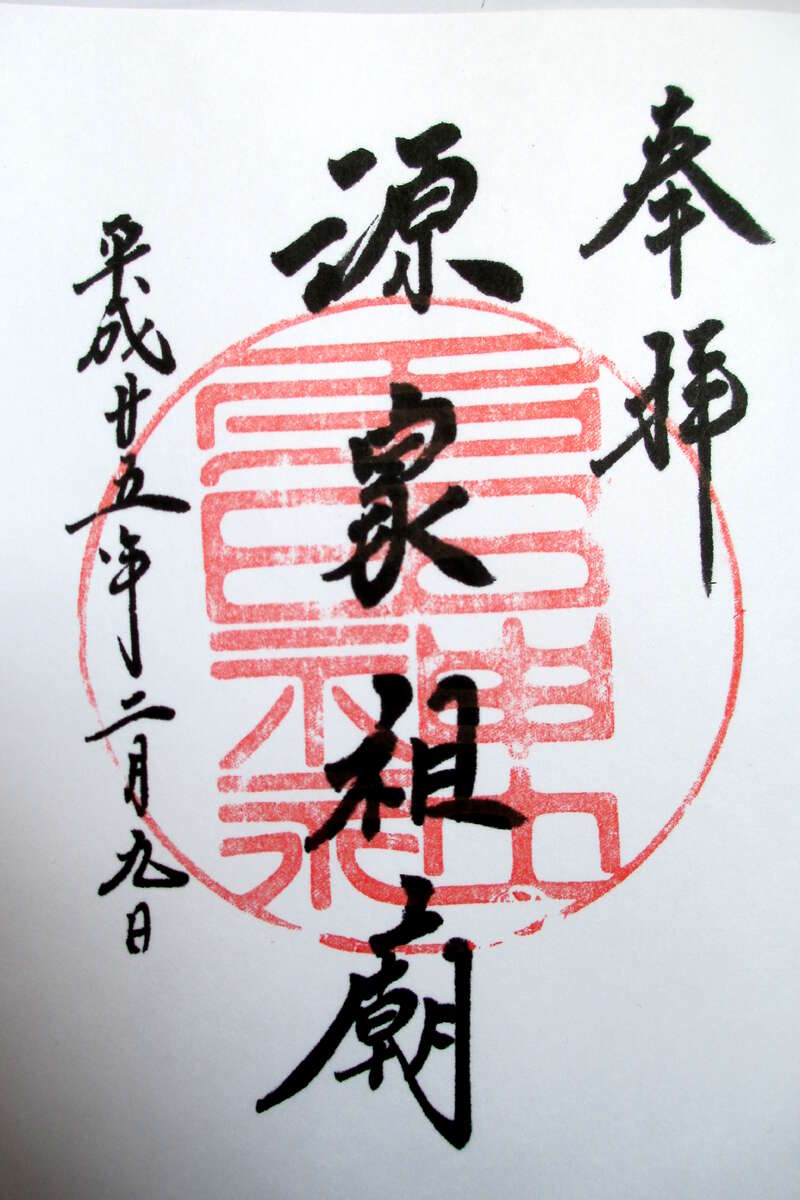 奉拝
源家祖廟
平成廿五年二月九日